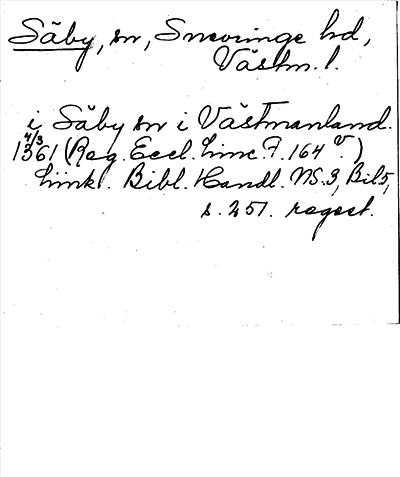 Säby, sn, Snevringe hd,
Västm. l.
i Säby sn i Västmanland.
4/3
1361 (Reg. Eccl. Linc. F. 164 v.)
Link. Bibl. Handl. NS. 3, Bil 5,
s. 251. regest.